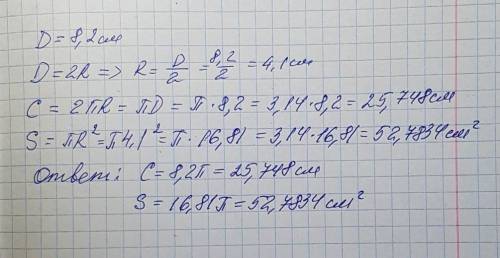 D = 8,2 см
D = 2R => R = D/2 = 8,2/2 = 4,1 см
C = 2ПR = ПD = П · 8,2 = 3,14 · 8,2 = 25,748 см
S = ПR² = П4,1² = П · 16,81 = 3,14 · 16,81 = 52,7834 см²
Ответ: C = 8,2П = 25,748 см
S = 16,81П = 52,7834 см²